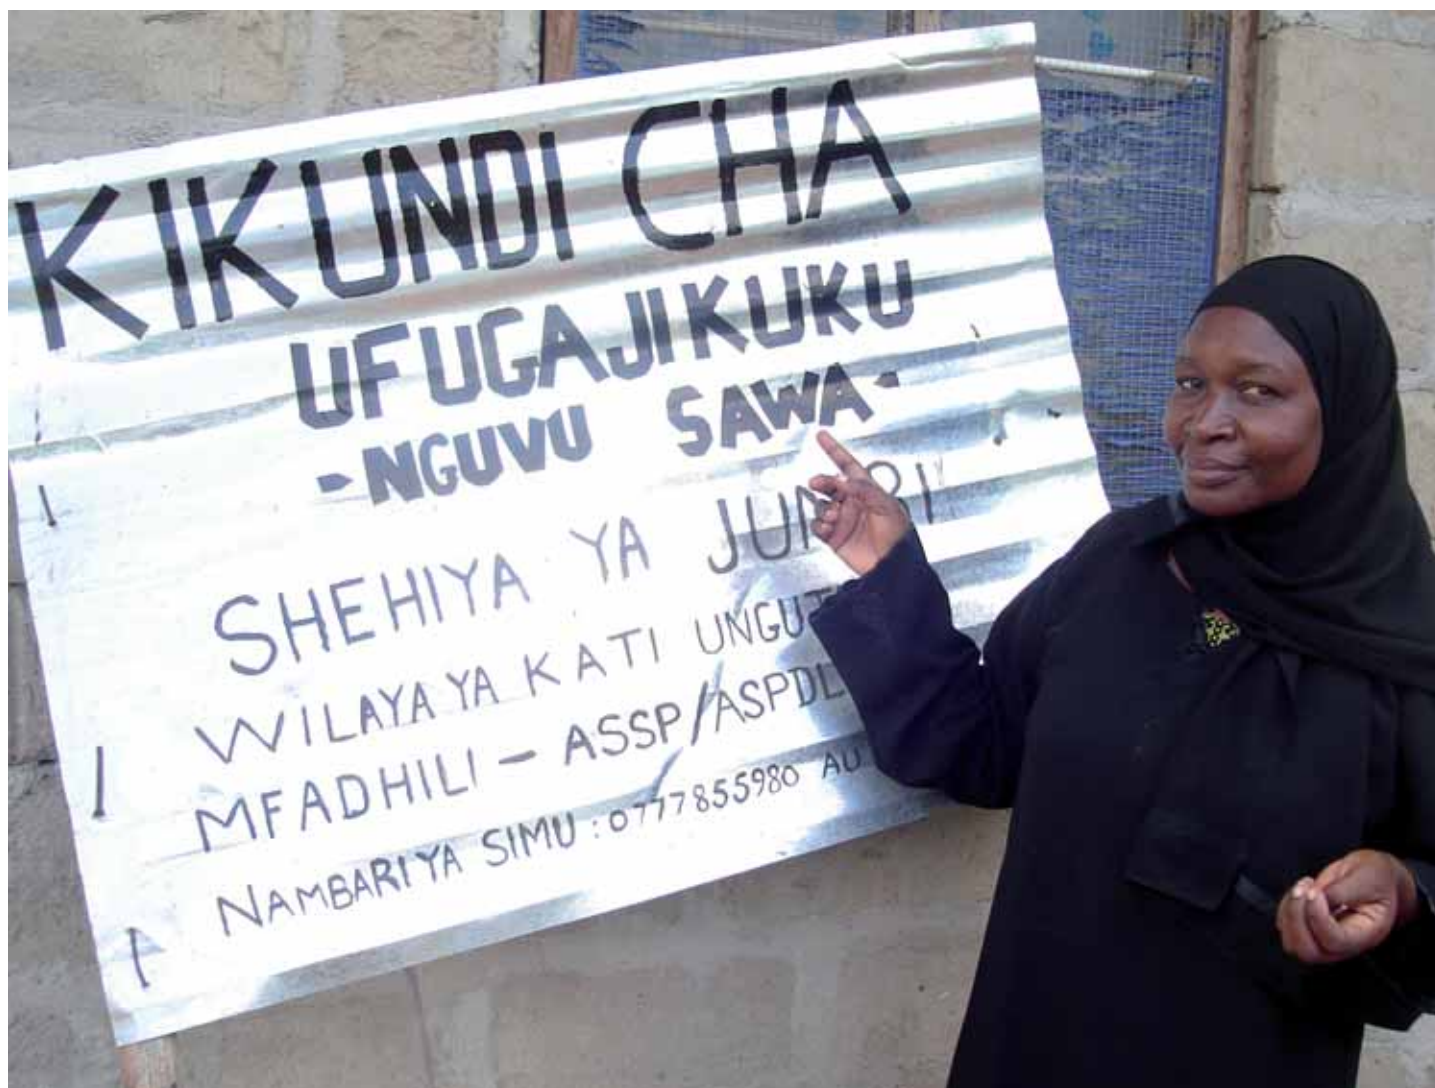 KIKUNDI CHA
UFUGAJI KUKU
-NGUVU SAWA-
SHEHIYA YA
WILAYA YA KATI
MFADHILI - ASSP/ASPDL
NAMBARI YA SIMU : 0777855980 AU